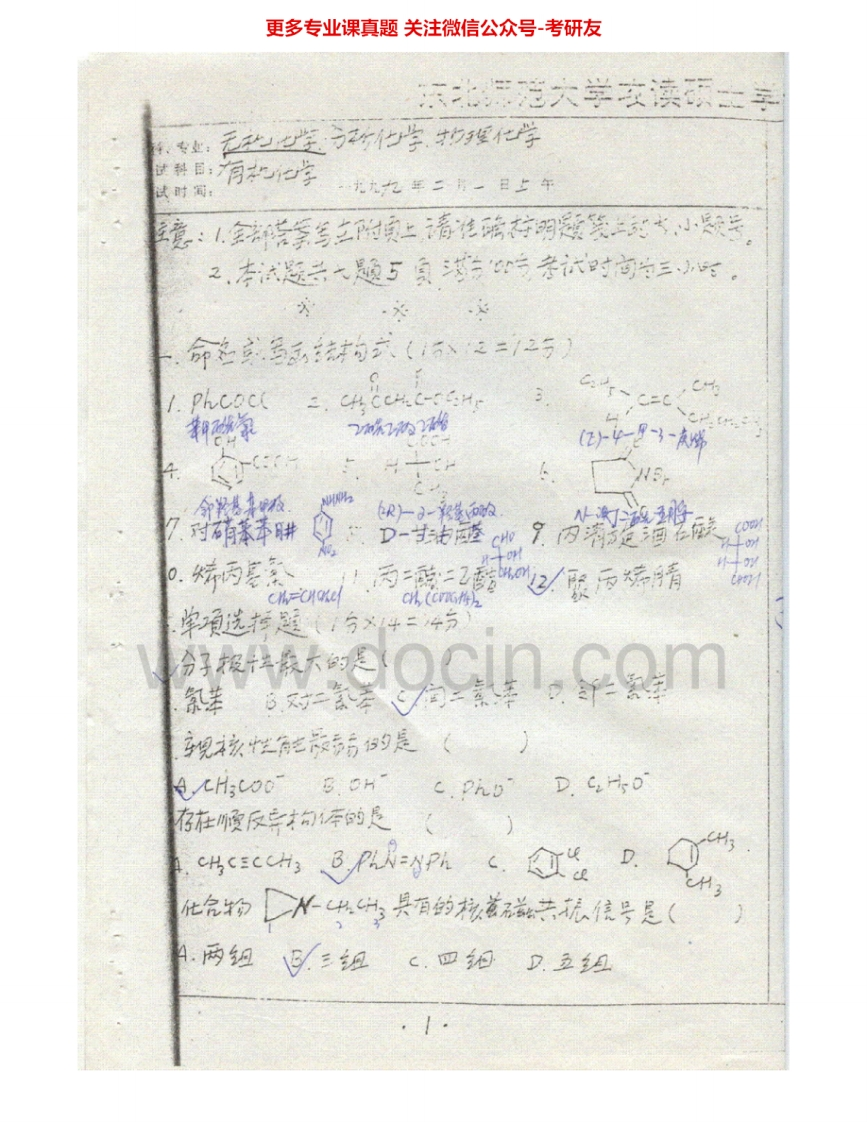 更多专业课真题 关注微信公众号-考研友
东北师范大学攻读硕士学
专业: 无机化学.分析化学.物理化学
试科目: 有机化学
试时间: 一九九九年二月一日上午
注意: 1.全部答案写在附页上,请准确标明题签上的大、小题号。
2.本试题共七题5页,满分100分,考试时间为三小时。
※ ※ ※
一. 命名或写出结构式 (1分×12=12分)
1. PhCOCl 2. CH₃CCH₂C-OC₂H₅ 3. C₂H₅ C=C CH₃
H CH₂CH₂CH₃
苯甲酰氯 乙酰乙酸乙酯 (Z)-4-甲-3-庚烯
4. OH COOH 5. COOH H OH CH₃ 6. NBr
邻羟基苯甲酸 (2R)-2-羟基丙酸 N-溴丁二酰亚胺
7. 对硝基苯肼 NHNH₂ NO₂ 8. D-甘油醛 CHO H OH CH₂OH 9. 内消旋酒石酸 COOH H OH H OH COOH
0. 烯丙基氯 11. 丙二酸二乙酯 12. 聚丙烯腈
CH₂=CHCH₂Cl CH₂(COOC₂H₅)₂
单项选择题 (1分×14=14分)
www.docin.com
分子极性最大的是( )
氯苯 B.对二氯苯 C.间二氯苯 D.邻二氯苯
亲核性能最弱的是 ( )
A. CH₃COO⁻ B. OH⁻ C. PhO⁻ D. C₂H₅O⁻
存在顺反异构体的是 ( )
A. CH₃C≡CCH₃ B. PhN=NPh C. Cl Cl D. CH₃ CH₃
化合物 N-CH₂CH₃ 具有的核磁共振信号是( )
1 2 3
A. 两组 B. 三组 C. 四组 D. 五组
·1·